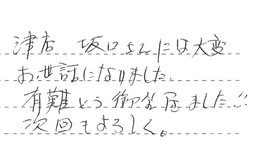 津店 坂口さんには大変
お世話になりました。
有難とう御座居ました!!
次回もよろしく。